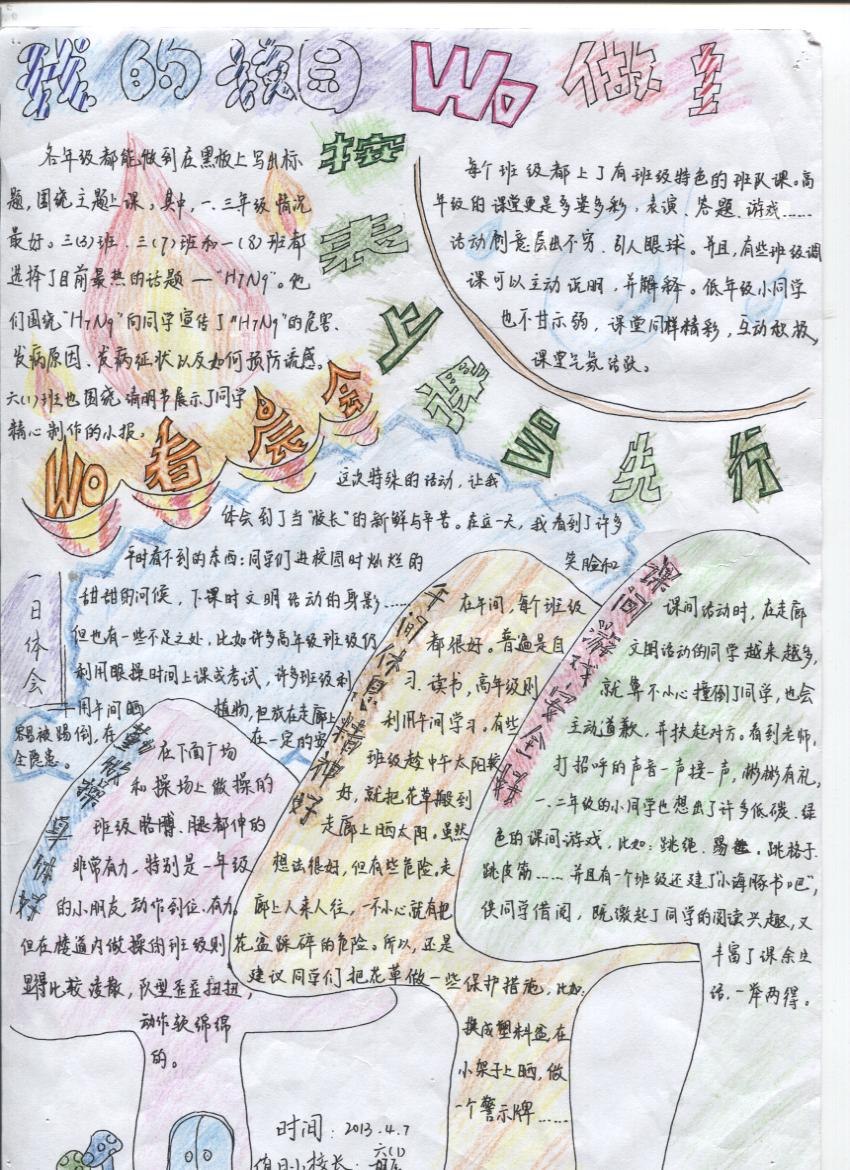 我的校园Wo做主
各年级都能做到在黑板上写出标
题，围绕主题上课。其中，一、三年级情况
最好。三(3)班、三(7)班和一(8)班都
选择了目前最热的话题—“H7N9”。他
们围绕“H7N9”向同学宣传了“H7N9”的危害、
发病原因、发病症状以及如何预防流感。
六(1)班也围绕清明节展示了同学
精心制作的小报。
Wo看晨会
按
表
上
课
Wo
先
行
每个班级都上了有班级特色的班队课。高
年级的课堂更是多姿多彩，表演、答题、游戏……
活动创意层出不穷、引人眼球。并且，有些班级调
课可以主动说明，并解释。低年级小同学
也不甘示弱，课堂同样精彩，互动积极，
课堂气氛活跃。
一日体会
这次特殊的活动，让我
体会到了当“校长”的新鲜与辛苦。在这一天，我看到了许多
平时看不到的东西：同学们进校园时灿烂的笑脸和
甜甜的问候，下课时文明活动的身影……
但也有一些不足之处，比如许多高年级班级仍
利用眼操时间上课或考试，许多班级利
用午间晒植物，但放在走廊上
容易被踢倒，存在一定的安
全隐患。
午间休息精神好
在午间，每个班级
都很好。普遍是自
习、读书，高年级则
利用午间学习。有些
班级趁中午太阳较
好，就把花草搬到
走廊上晒太阳。虽然
想法很好，但有些危险，走
廊上人来人往，一不小心就有把
花盆踩碎的危险。所以，还是
建议同学们把花草做一些保护措施，比如：
换成塑料盆、在
小架子上晒，做
一个警示牌……
课间游戏安全
课间活动时，在走廊
文明活动的同学越来越多，
就算不小心撞倒了同学，也会
主动道歉，并扶起对方。看到老师，
打招呼的声音一声接一声，彬彬有礼，
一、二年级的小同学也想出了许多低碳、绿
色的课间游戏，比如：跳绳、踢毽、跳格子、
跳皮筋……并且有一个班级还建了“小海豚书吧”，
供同学借阅，既激起了同学的阅读兴趣，又
丰富了课余生
活，一举两得。
在下面广场
和操场上做操的
班级胳膊、腿都伸的
非常有力，特别是一年级
的小朋友动作到位、有力。
但在楼道内做操的班级则
显得比较凌散，队型歪歪扭扭，
动作软绵绵
的。
时间：2013.4.7
值日小校长：六(1)